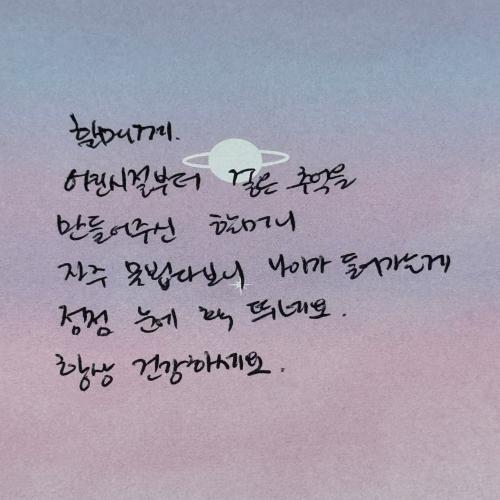 할머니께.
어린시절부터 깊은 추억을
만들어주신 할머니
자주 못뵙다보니 나이가 들어가는게
점점 눈에 팍 띄네요.
항상 건강하세요.